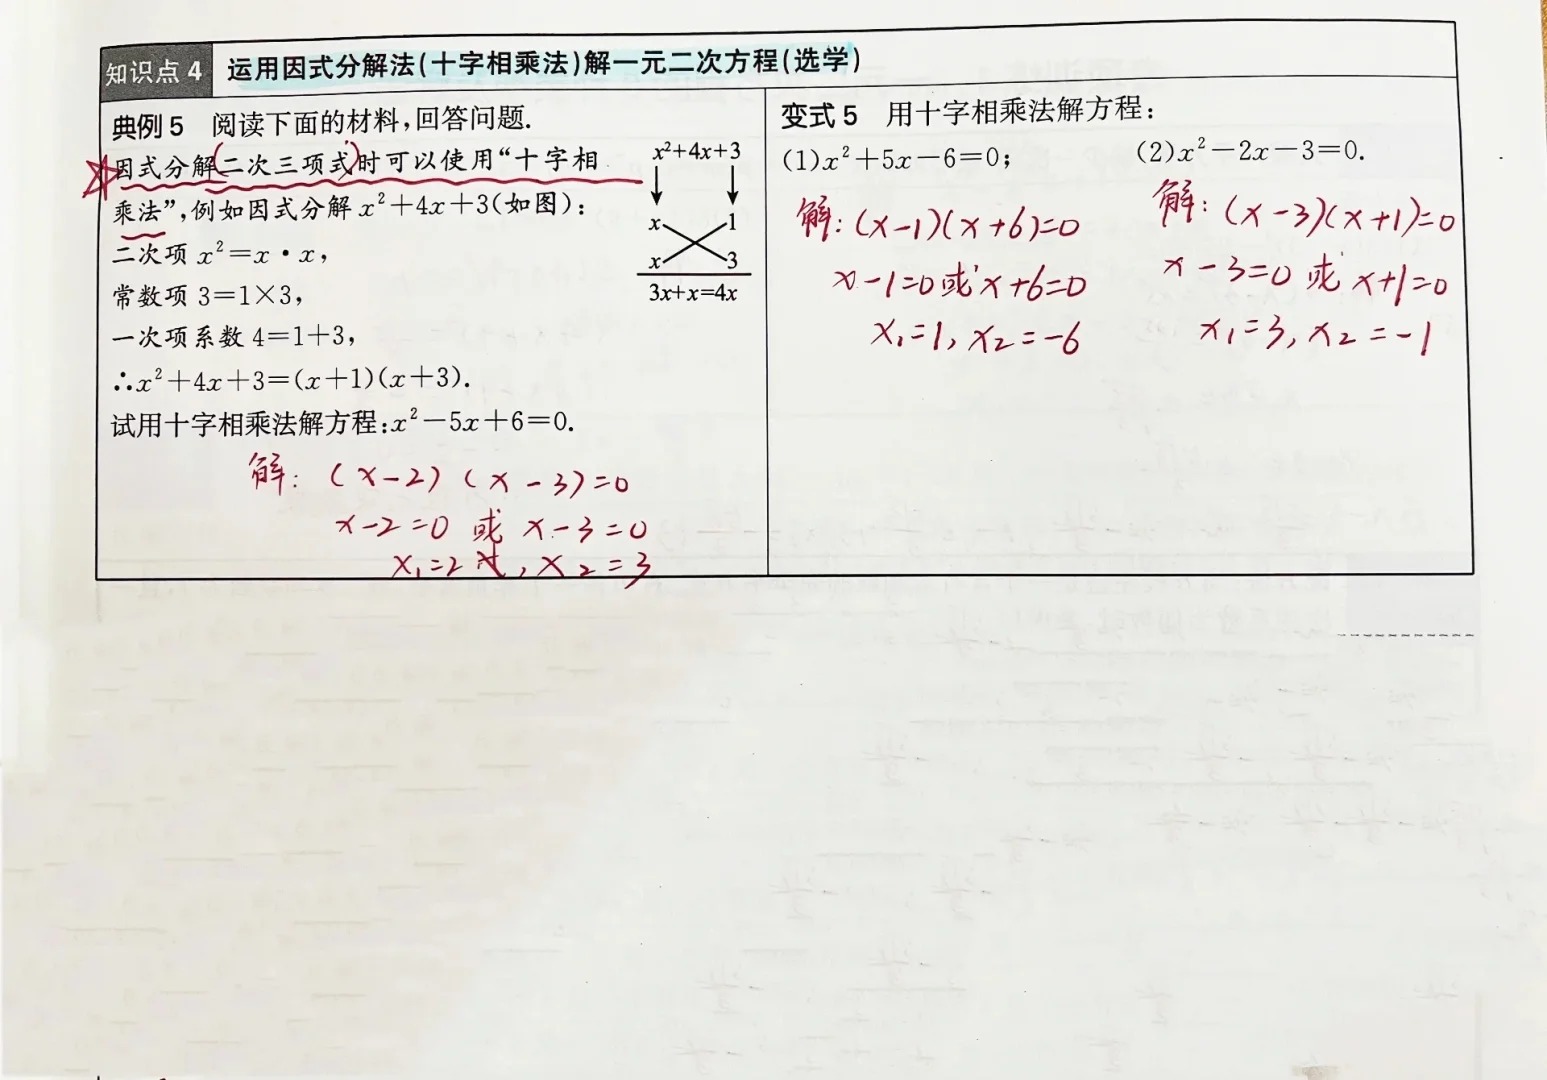 知识点 4 运用因式分解法(十字相乘法)解一元二次方程(选学)
典例 5 阅读下面的材料,回答问题.
因式分解(二次三项式)时可以使用“十字相
乘法”,例如因式分解 x²+4x+3(如图):
二次项 x²=x·x,
常数项 3=1×3,
一次项系数 4=1+3,
∴x²+4x+3=(x+1)(x+3).
试用十字相乘法解方程:x²-5x+6=0.
x²+4x+3
x 1
x 3
3x+x=4x
解: (x-2)(x-3)=0
x-2=0 或 x-3=0
x₁=2, x₂=3
变式 5 用十字相乘法解方程:
(1)x²+5x-6=0;
解: (x-1)(x+6)=0
x-1=0或x+6=0
x₁=1, x₂=-6
(2)x²-2x-3=0.
解: (x-3)(x+1)=0
x-3=0 或 x+1=0
x₁=3, x₂=-1